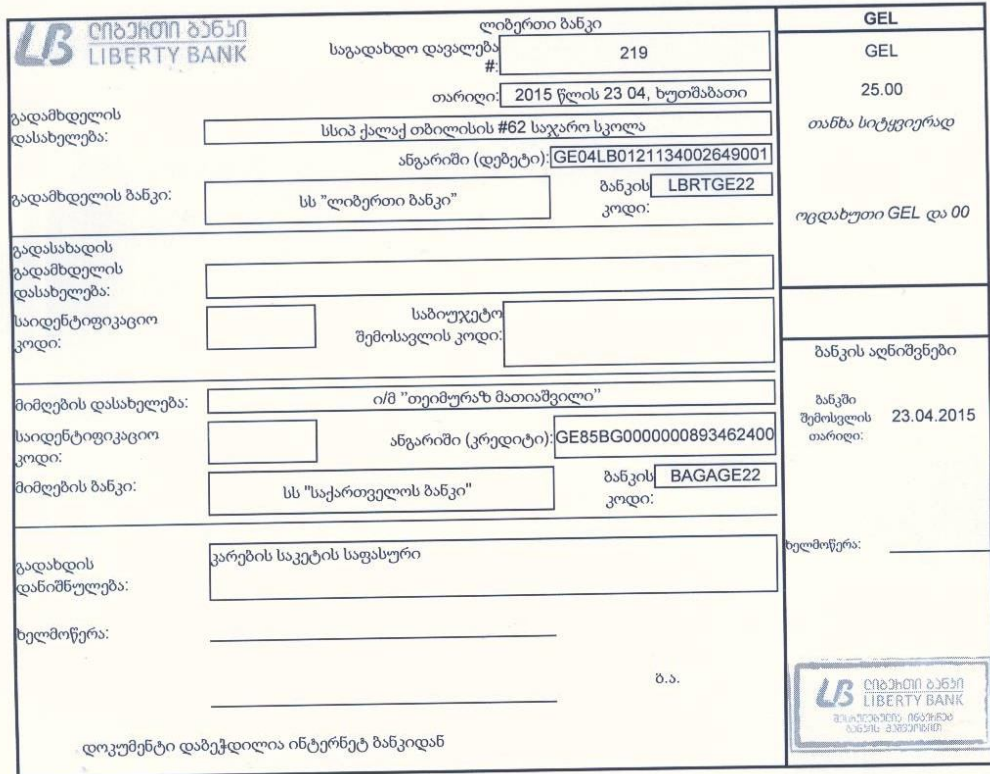 ლიბერთი ბანკი
LIBERTY BANK
ლიბერთი ბანკი
საგადახდო დავალება #: 219
თარიღი: 2015 წლის 23 04, ხუთშაბათი
გადამხდელის დასახელება: სსიპ ქალაქ თბილისის #62 საჯარო სკოლა
ანგარიში (დებეტი): GE04LB0121134002649001
გადამხდელის ბანკი: სს "ლიბერთი ბანკი" ბანკის კოდი: LBRTGE22
გადასახადის გადამხდელის დასახელება:
საიდენტიფიკაციო კოდი: საბიუჯეტო შემოსავლის კოდი:
მიმღების დასახელება: ი/მ "თეიმურაზ მათიაშვილი"
საიდენტიფიკაციო კოდი: ანგარიში (კრედიტი): GE85BG0000000893462400
მიმღების ბანკი: სს "საქართველოს ბანკი" ბანკის კოდი: BAGAGE22
გადახდის დანიშნულება: კარების საკეტის საფასური
ხელმოწერა:
ბ.ა.
დოკუმენტი დაბეჭდილია ინტერნეტ ბანკიდან
GEL
GEL
25.00
თანხა სიტყვიერად
ოცდახუთი GEL და 00
ბანკის აღნიშვნები
ბანკში შემოსვლის თარიღი: 23.04.2015
ხელმოწერა:
ლიბერთი ბანკი
LIBERTY BANK
შესრულებულია ინტერნეტ
ბანკის მეშვეობით